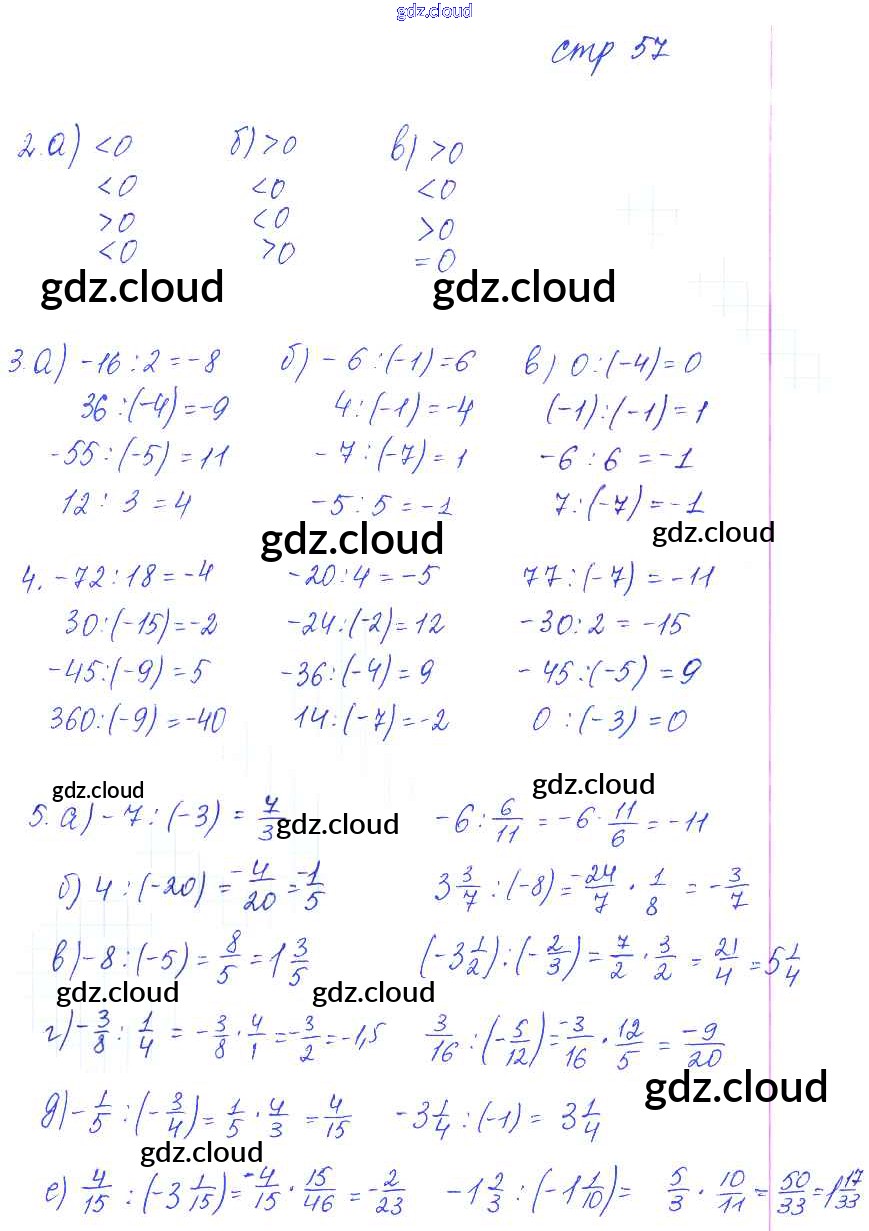 gdz.cloud
стр 57
2. а) <0 б) >0 в) >0
<0 <0 <0
>0 <0 >0
<0 >0 =0
gdz.cloud gdz.cloud
3. а) -16 : 2 = -8 б) -6 : (-1) = 6 в) 0 : (-4) = 0
36 : (-4) = -9 4 : (-1) = -4 (-1) : (-1) = 1
-55 : (-5) = 11 -7 : (-7) = 1 -6 : 6 = -1
12 : 3 = 4 -5 : 5 = -1 7 : (-7) = -1
gdz.cloud gdz.cloud
4. -72 : 18 = -4 -20 : 4 = -5 77 : (-7) = -11
30 : (-15) = -2 -24 : (-2) = 12 -30 : 2 = -15
-45 : (-9) = 5 -36 : (-4) = 9 -45 : (-5) = 9
360 : (-9) = -40 14 : (-7) = -2 0 : (-3) = 0
gdz.cloud gdz.cloud
5. а) -7 : (-3) = 7/3 gdz.cloud -6 : 6/11 = -6 · 11/6 = -11
б) 4 : (-20) = -4/20 = -1/5 3 3/7 : (-8) = -24/7 · 1/8 = -3/7
в) -8 : (-5) = 8/5 = 1 3/5 (-3 1/2) : (-2/3) = 7/2 · 3/2 = 21/4 = 5 1/4
gdz.cloud gdz.cloud
г) -3/8 : 1/4 = -3/8 · 4/1 = -3/2 = -1,5 3/16 : (-5/12) = -3/16 · 12/5 = -9/20
gdz.cloud
д) -1/5 : (-3/4) = 1/5 · 4/3 = 4/15 -3 1/4 : (-1) = 3 1/4
gdz.cloud
е) 4/15 : (-3 1/15) = -4/15 · 15/46 = -2/23 -1 2/3 : (-1 1/10) = 5/3 · 10/11 = 50/33 = 1 17/33